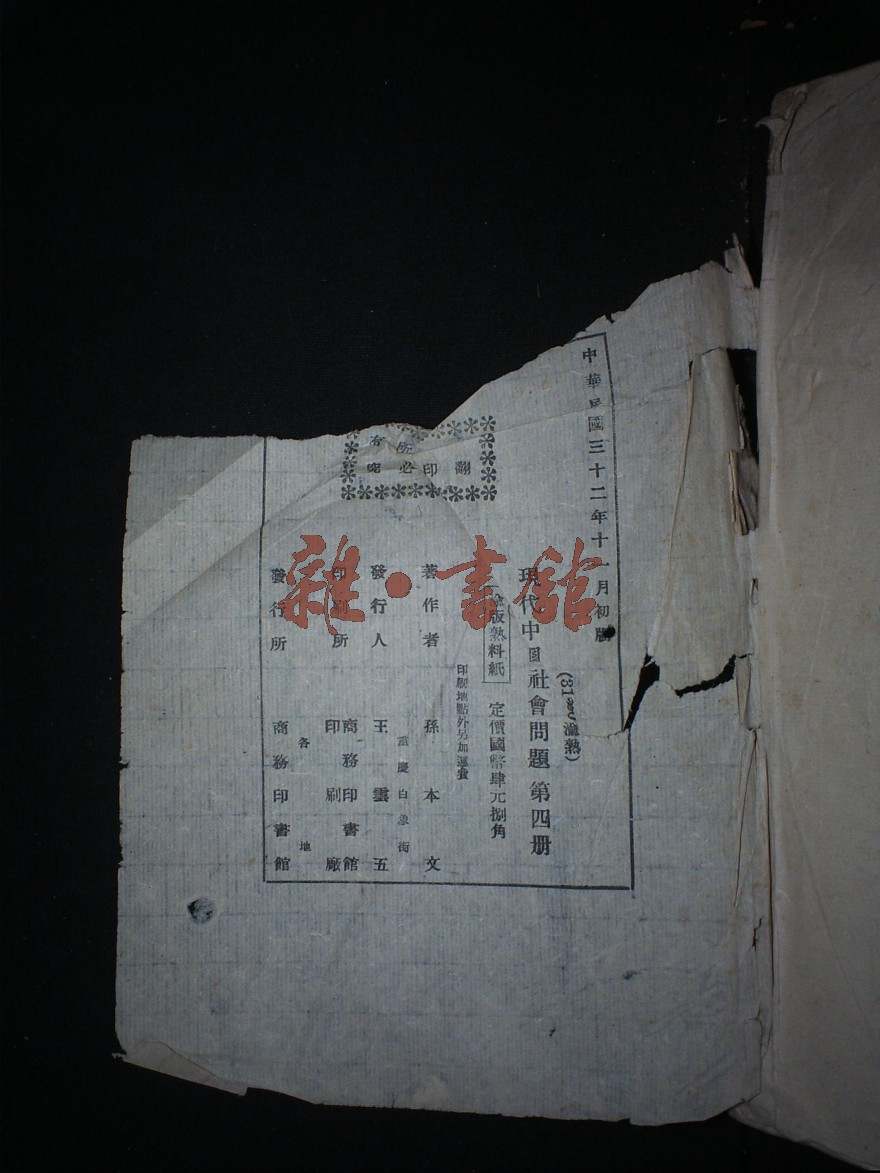 中華民國三十二年十一月初版
(31 渝熟)
現代中國社會問題 第四册
渝版熟料紙 定價國幣肆元捌角
印刷地點外另加運費
著作者 孫本文
重慶白象街
發行人 王雲五
印刷所 商務印書館印刷廠
各地
發行所 商務印書館
有所
翻印必究
雜·書館